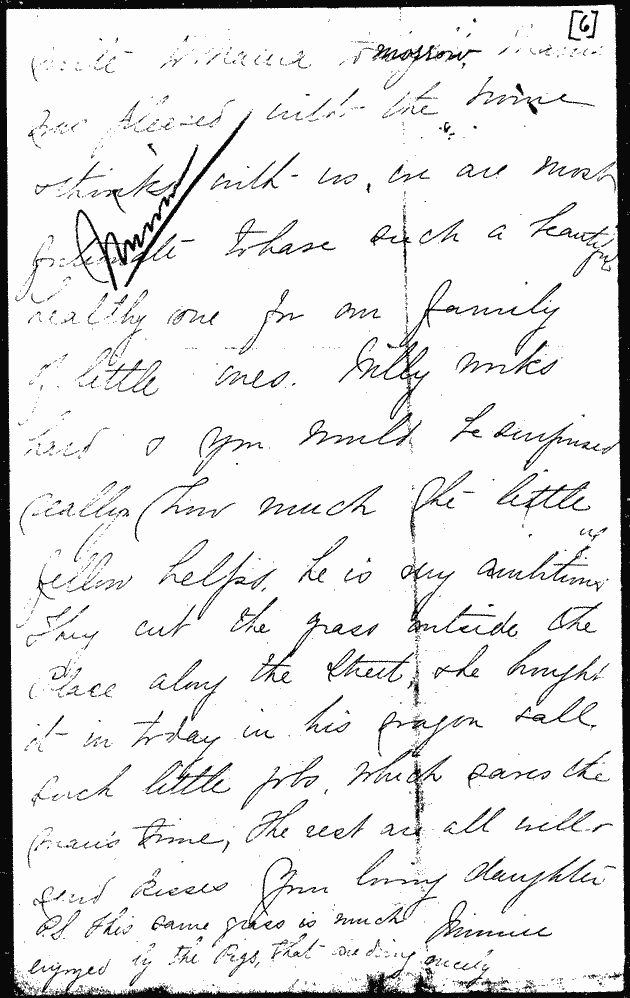 [6]
write to Mama tomorrow, Mama
was pleased with the home
& thinks with us, we are most
fortunate to have such a beautiful
healthy one for our family
of little ones. Willy works
hard & you would be surprised
really how much the little
fellow helps, he is very ambitious
They cut the grass outside the
place along the Street, & he brought
it in today in his wagon & all
such little jobs, which saves the
man's time, The rest are all well &
send kisses Your loving daughter
Minnie
P.S. This same grass is much
enjoyed by the Pigs, that are doing nicely